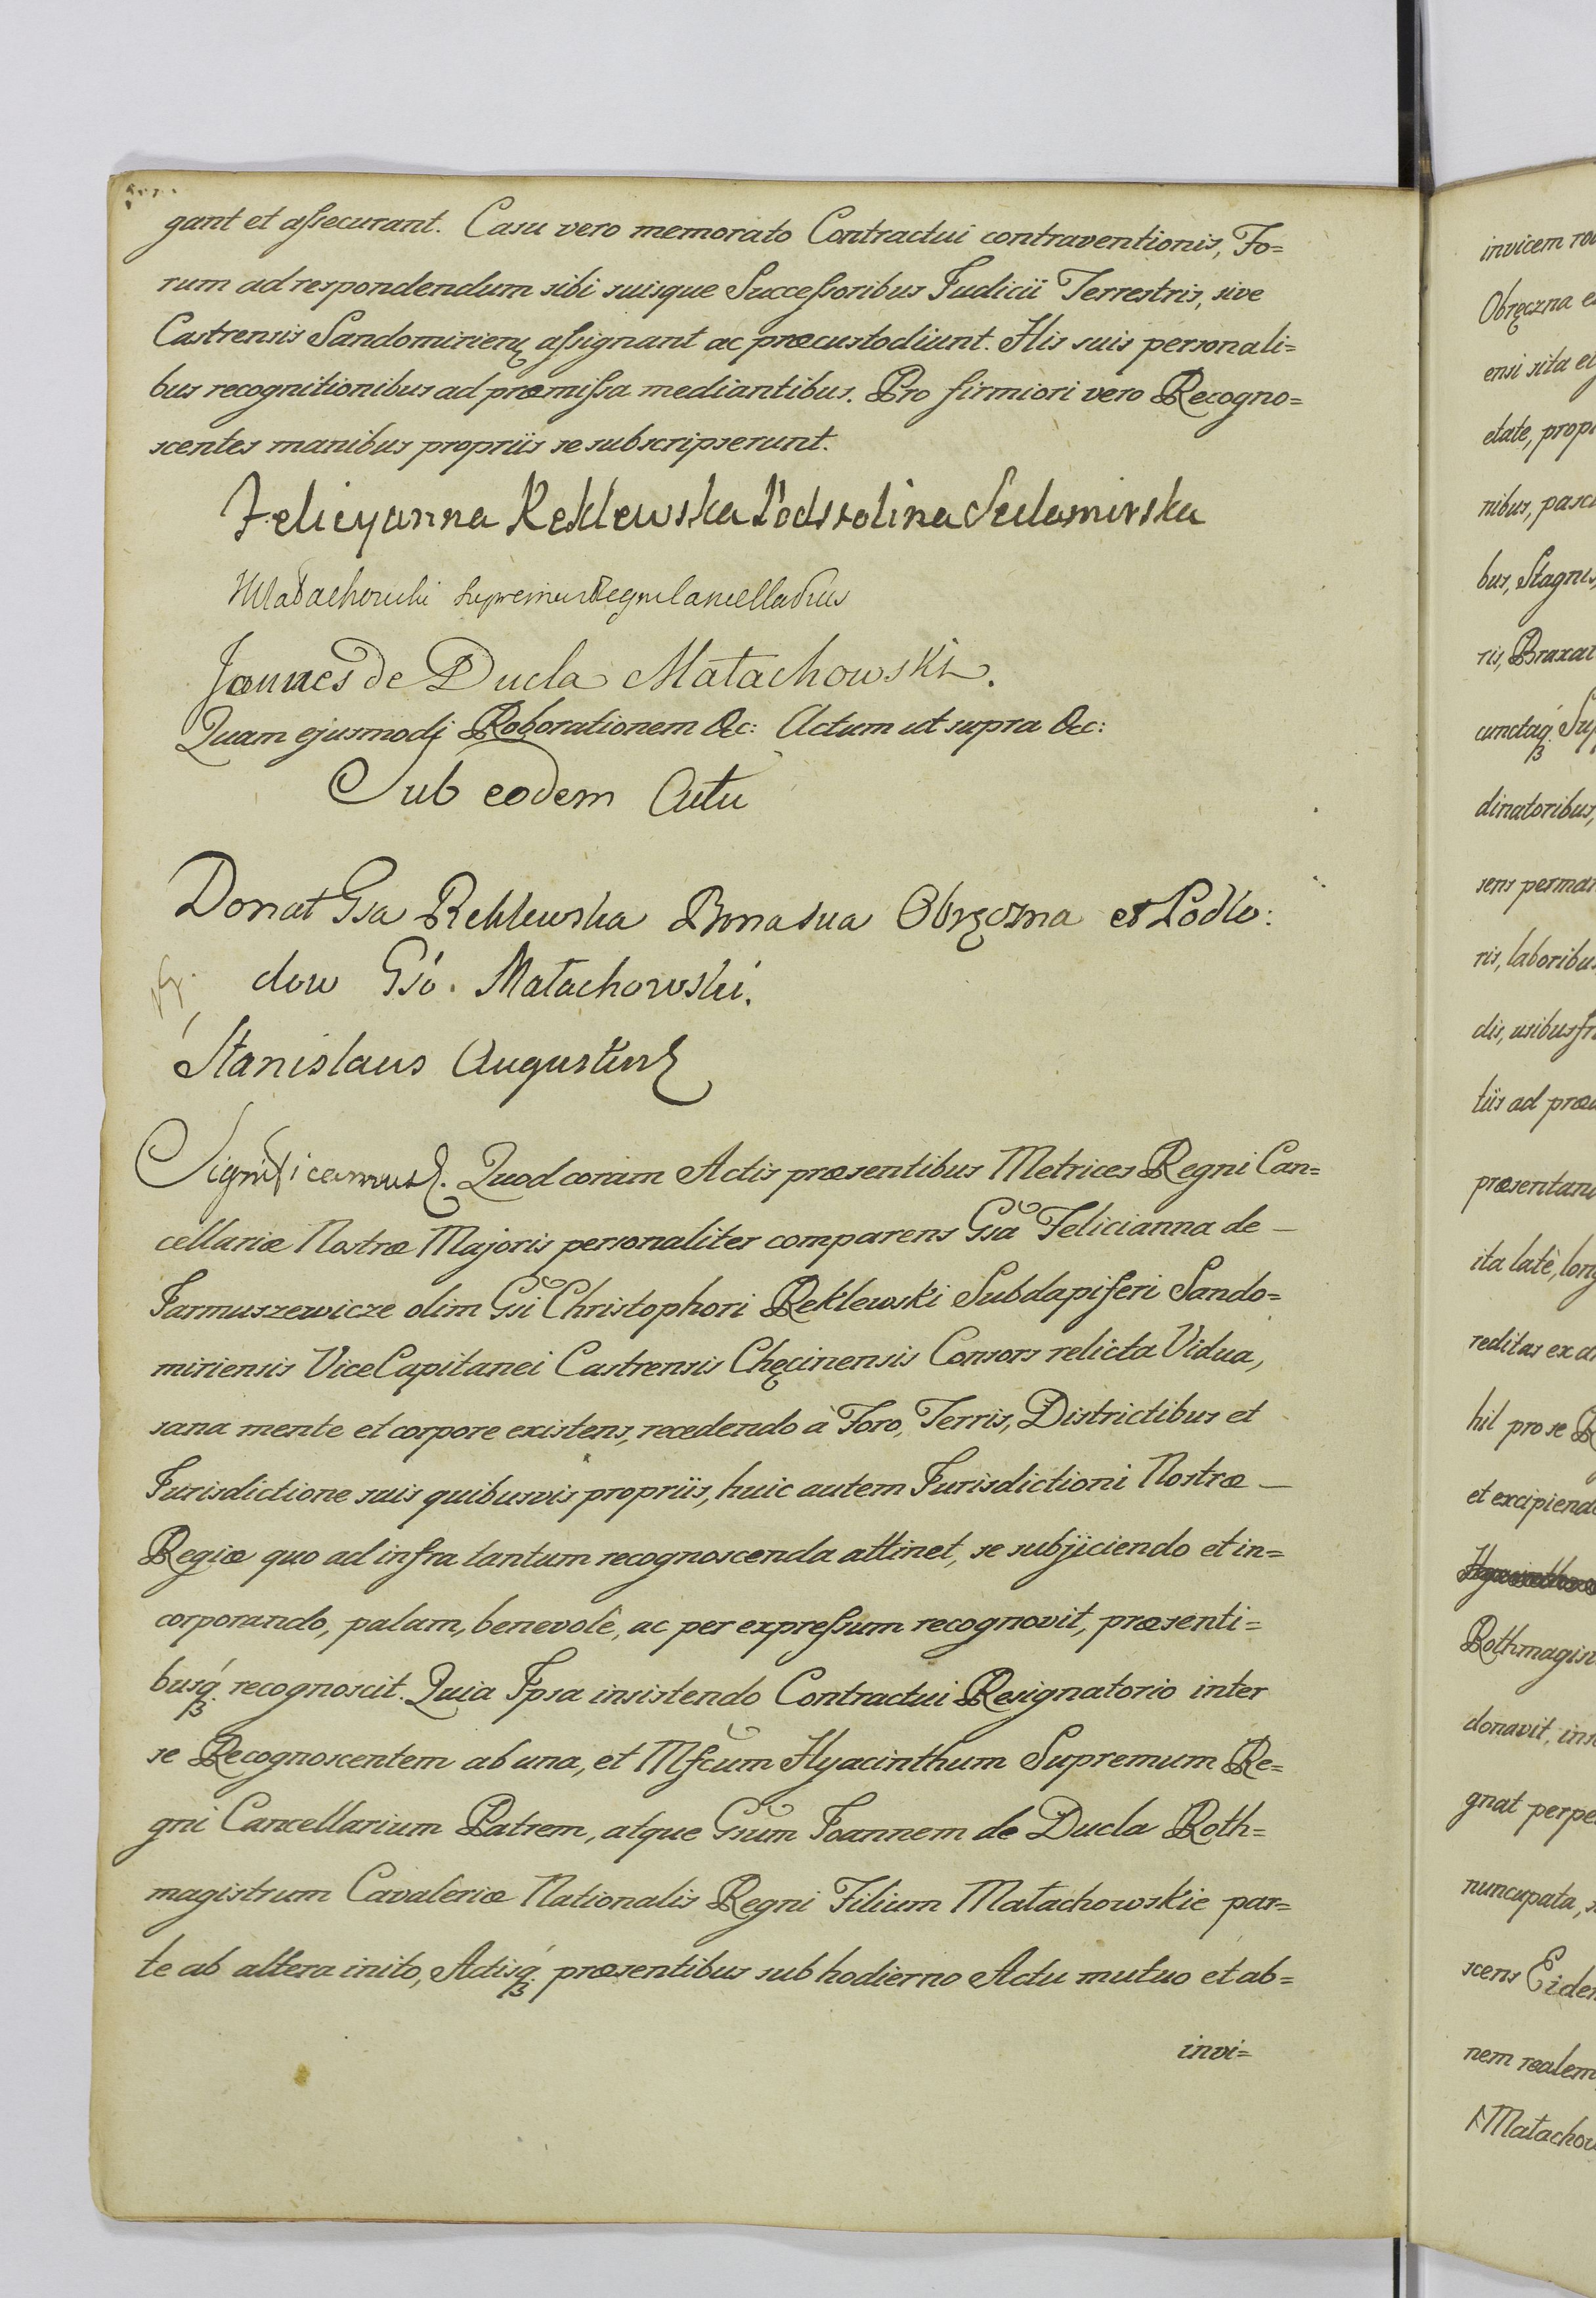 gant et assecurant. Casu vero memorato Contractui contraventionis, Fo=
rum ad respondendum sibi suisque Successoribus Judicii Terrestris, sive
Castrensis Sandomirien assignant ac præcustodiunt. His suis personali=
bus recognitionibus ad præmissa mediantibus. Pro firmiori vero Recogno=
scentes manibus propriis se subscripserunt.
Felicyanna Reklewska Podstolina Sendomirska
Małachowski Supremus Regni Cancellarius
Joannes de Ducla Małachowski.
Quam ejusmodj Roborationem &c: Actum ut supra &c:
Sub eodem Actu
Donat Gsa Reklewska Bona sua Obręczna et Podło:
dow Gsó. Małachowski.
Stanislaus Augustus
Significamus. Quod coram Actis præsentibus Metrices Regni Can=
cellariæ Nostræ Majoris personaliter comparens Gsa Felicianna de –
Jarmuszewicze olim Gsi Christophori Reklewski Subdapiferi Sando=
miriensis ViceCapitanei Castrensis Chęcinensis Consors relicta Vidua,
sana mente et corpore existens, recedendo à Foro, Terris, Districtibus et
Jurisdictione suis quibusvis propriis, huic autem Jurisdictioni Nostræ –
Regiæ quo ad infra tantum recognoscenda attinet, se subjiciendo et in=
corporando, palam, benevolè, ac per expressum recognovit, præsenti=
busq́ recognoscit. Quia Ipsa insistendo Contractui Resignatorio inter
se Recognoscentem ab una, et Mfcum Hyacinthum Supremum Re=
gni Cancellarium Patrem, atque Gsum Joannem de Ducla Roth=
magistrum Cavaleriæ Nationalis Regni Filium Małachowskie par=
te ab altera inito, Actisq́ præsentibus sub hodierno Actu mutuo et ab=
invi=
invicem
Obręczna
ensi sita
etate,
nibus,
bus, Stagnis,
ris,
cunctaq́
dinatoribus,
sens
ris, laboribus
dis,
tiis ad
ita latè,
reditas
hil pro se
et
donavit,
gnat
nuncupata,
scens
nem realem